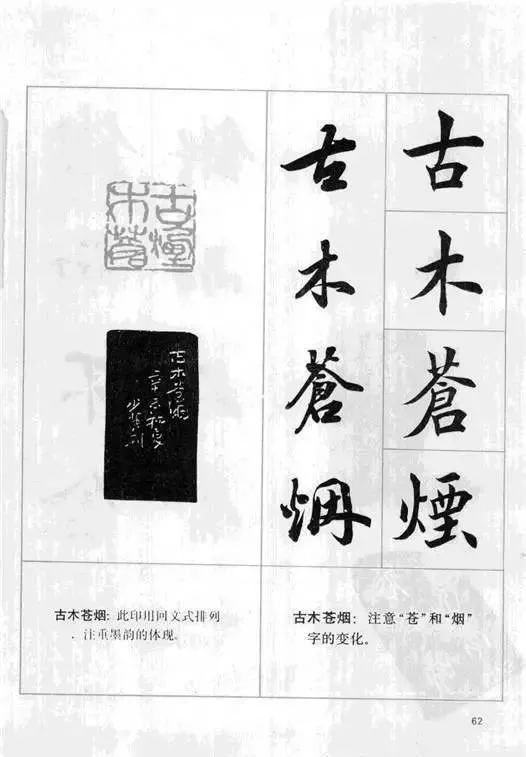 古木蒼煙
古木蒼烟
古木苍烟：此印用回文式排列
，注重墨韵的体现。
古木苍烟：注意“苍”和“烟”
字的变化。
古煙
木蒼
古木苍烟
62